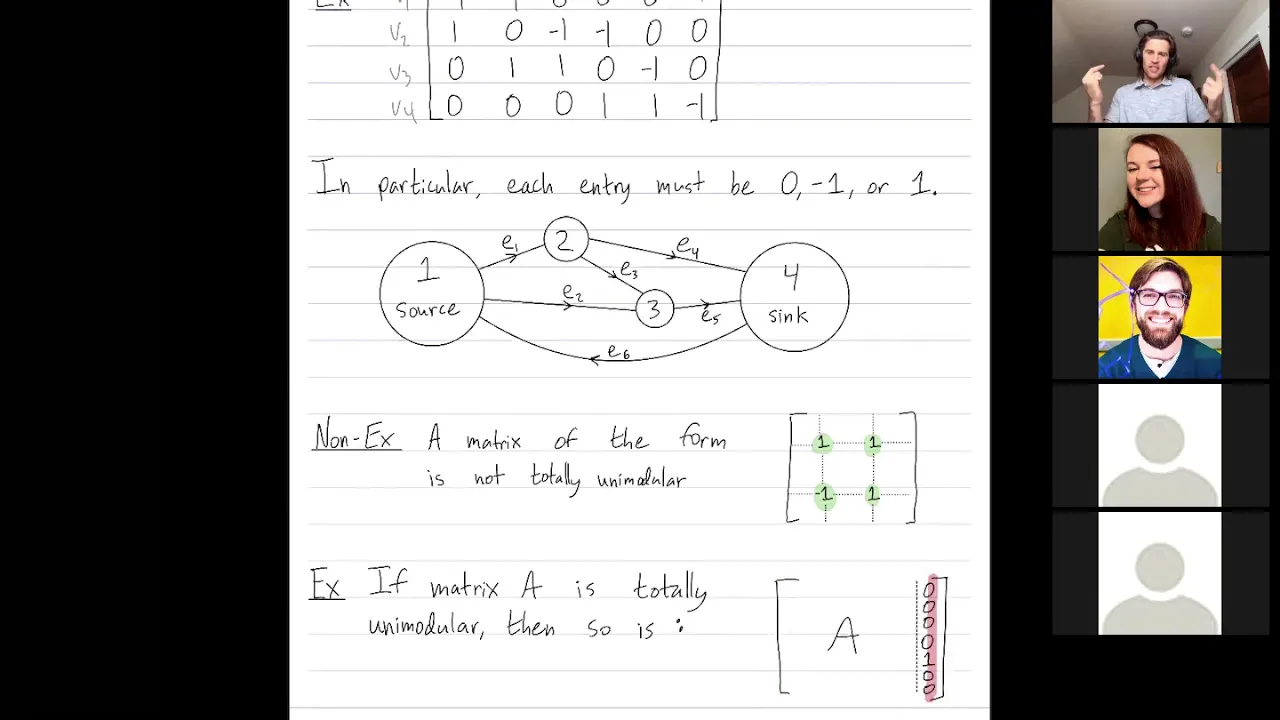 Ex
V2 1 0 -1 -1 0 0
V3 0 1 1 0 -1 0
V4 0 0 0 1 1 -1
In particular, each entry must be 0, -1, or 1.
1
source
e1
2
e4
e3
e2
3
e5
4
sink
e6
Non-Ex A matrix of the form
is not totally unimodular
1 1
-1 1
Ex If matrix A is totally
unimodular, then so is :
A
0
0
0
0
1
0
0